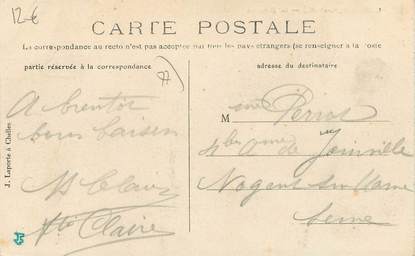 12€
CARTE POSTALE
La correspondance au recto n'est pas acceptée par tous les pays étrangers (se renseigner à la Poste
partie réservée à la correspondance
adresse du destinataire
77
A bientôt
bons baisers
Claire
M
Perrot
de Joinville
Nogent sur Marne
Seine
J. Laporte à Chelles